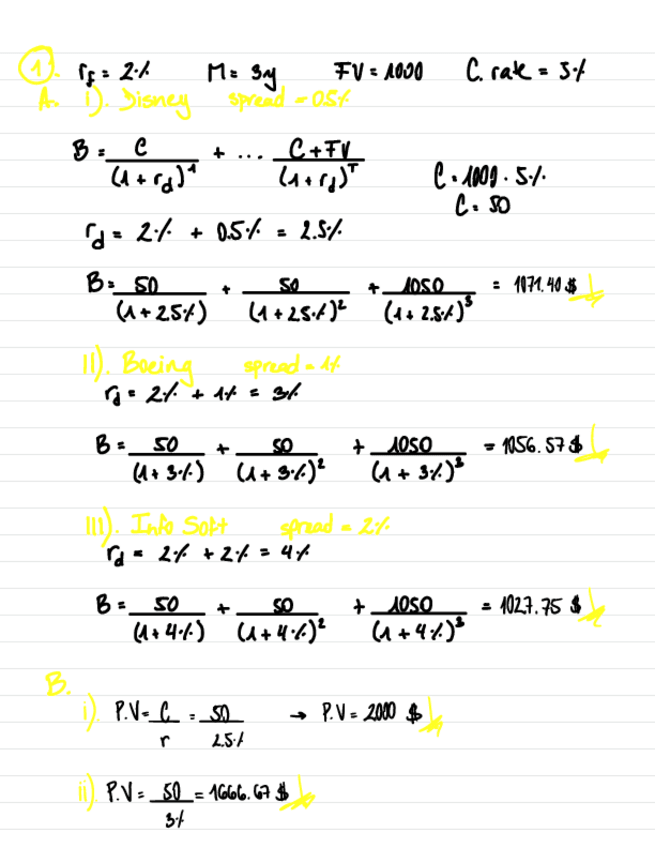 1). r_f = 2% M = 3y FV = 1000 C. rate = 5%
A. i). Disney spread = 0.5%
B = C/(1 + r_d)^1 + ... C + FV/(1 + r_d)^T
C = 1000 · 5%
C = 50
r_d = 2% + 0.5% = 2.5%
B = 50/(1 + 2.5%) + 50/(1 + 2.5%)^2 + 1050/(1 + 2.5%)^3 = 1071.40 $
II). Boeing spread = 1%
r_d = 2% + 1% = 3%
B = 50/(1 + 3%) + 50/(1 + 3%)^2 + 1050/(1 + 3%)^3 = 1056.57 $
III). Info Soft spread = 2%
r_d = 2% + 2% = 4%
B = 50/(1 + 4%) + 50/(1 + 4%)^2 + 1050/(1 + 4%)^3 = 1027.75 $
B.
i). P.V = C/r = 50/2.5% → P.V = 2000 $
ii). P.V = 50/3% = 1666.67 $